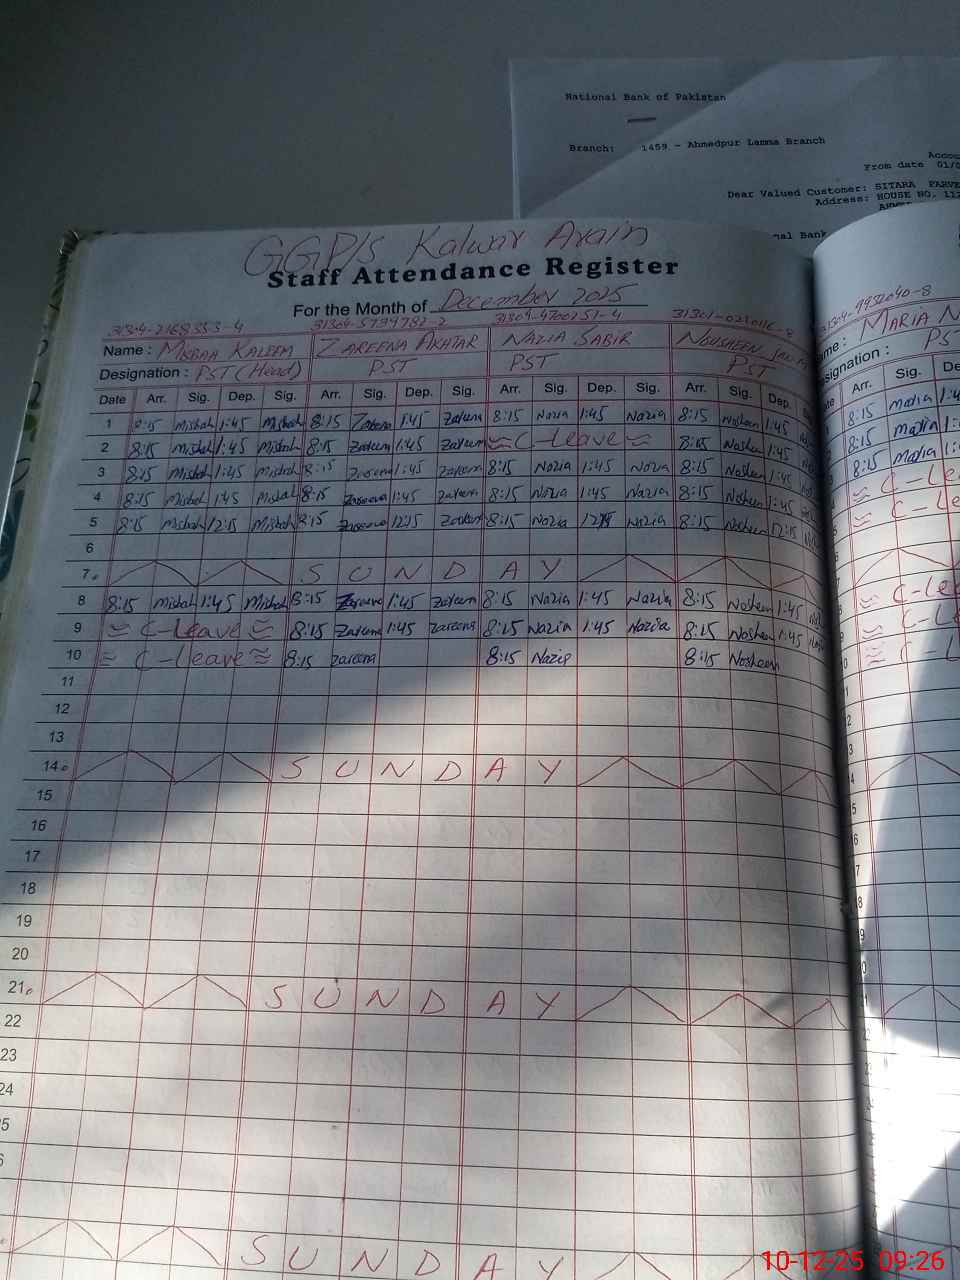 National Bank of Pakistan
Branch: 1459 - Ahmedpur Lamma Branch
From date 01/
Dear Valued Customer: SITARA PARVE
Address: HOUSE NO. 11
nal Bank
GGP/S Kalwar Arain
Staff Attendance Register
For the Month of December 2025
31304-2168353-4 31304-5739782-2 31304-4700151-4
Name : MISBAA KALEEM ZAREENA AKHTAR NAZIA SABIR NOUSHEEN MARIA N
Designation : PST (Head) PST PST PST PS
Date Arr. Sig. Dep. Sig. Arr. Sig. Dep. Sig. Arr. Sig. Dep. Sig. Arr. Sig. Dep. Arr. Sig. De
1 8:15 Misbah 1:45 Misbah 8:15 Zareena 1:45 Zareena 8:15 Nazia 1:45 Nazia 8:15 Nosheen 1:45 8:15 Maria 1:4
2 8:15 Misbah 1:45 Misbah 8:15 Zareena 1:45 Zareena C-Leave 8:15 Nosheen 1:45 8:15 Maria
3 8:15 Misbah 1:45 Misbah 8:15 Zareena 1:45 Zareena 8:15 Nazia 1:45 Nazia 8:15 Nosheen 1:45 8:15 Maria
4 8:15 Misbah 1:45 Misbah 8:15 Zareena 1:45 Zareena 8:15 Nazia 1:45 Nazia 8:15 Nosheen 1:45 C-Lea
5 8:15 Misbah 12:15 Misbah 8:15 Zareena 12:15 Zareena 8:15 Nazia 12:15 Nazia 8:15 Nosheen 12:15 C-Le
6
7 SUNDAY
8 8:15 Misbah 1:45 Misbah 8:15 Zareena 1:45 Zareena 8:15 Nazia 1:45 Nazia 8:15 Nosheen 1:45 C-Lea
9 C-Leave 8:15 Zareena 1:45 Zareena 8:15 Nazia 1:45 Nazia 8:15 Nosheen 1:45 C-Le
10 C-Leave 8:15 Zareena 8:15 Nazia 8:15 Nosheen C-L
11
12
13
14 SUNDAY
15
16
17
18
19
20
21 SUNDAY
22
23
24
5
6
SUNDAY
10-12-25 09:26